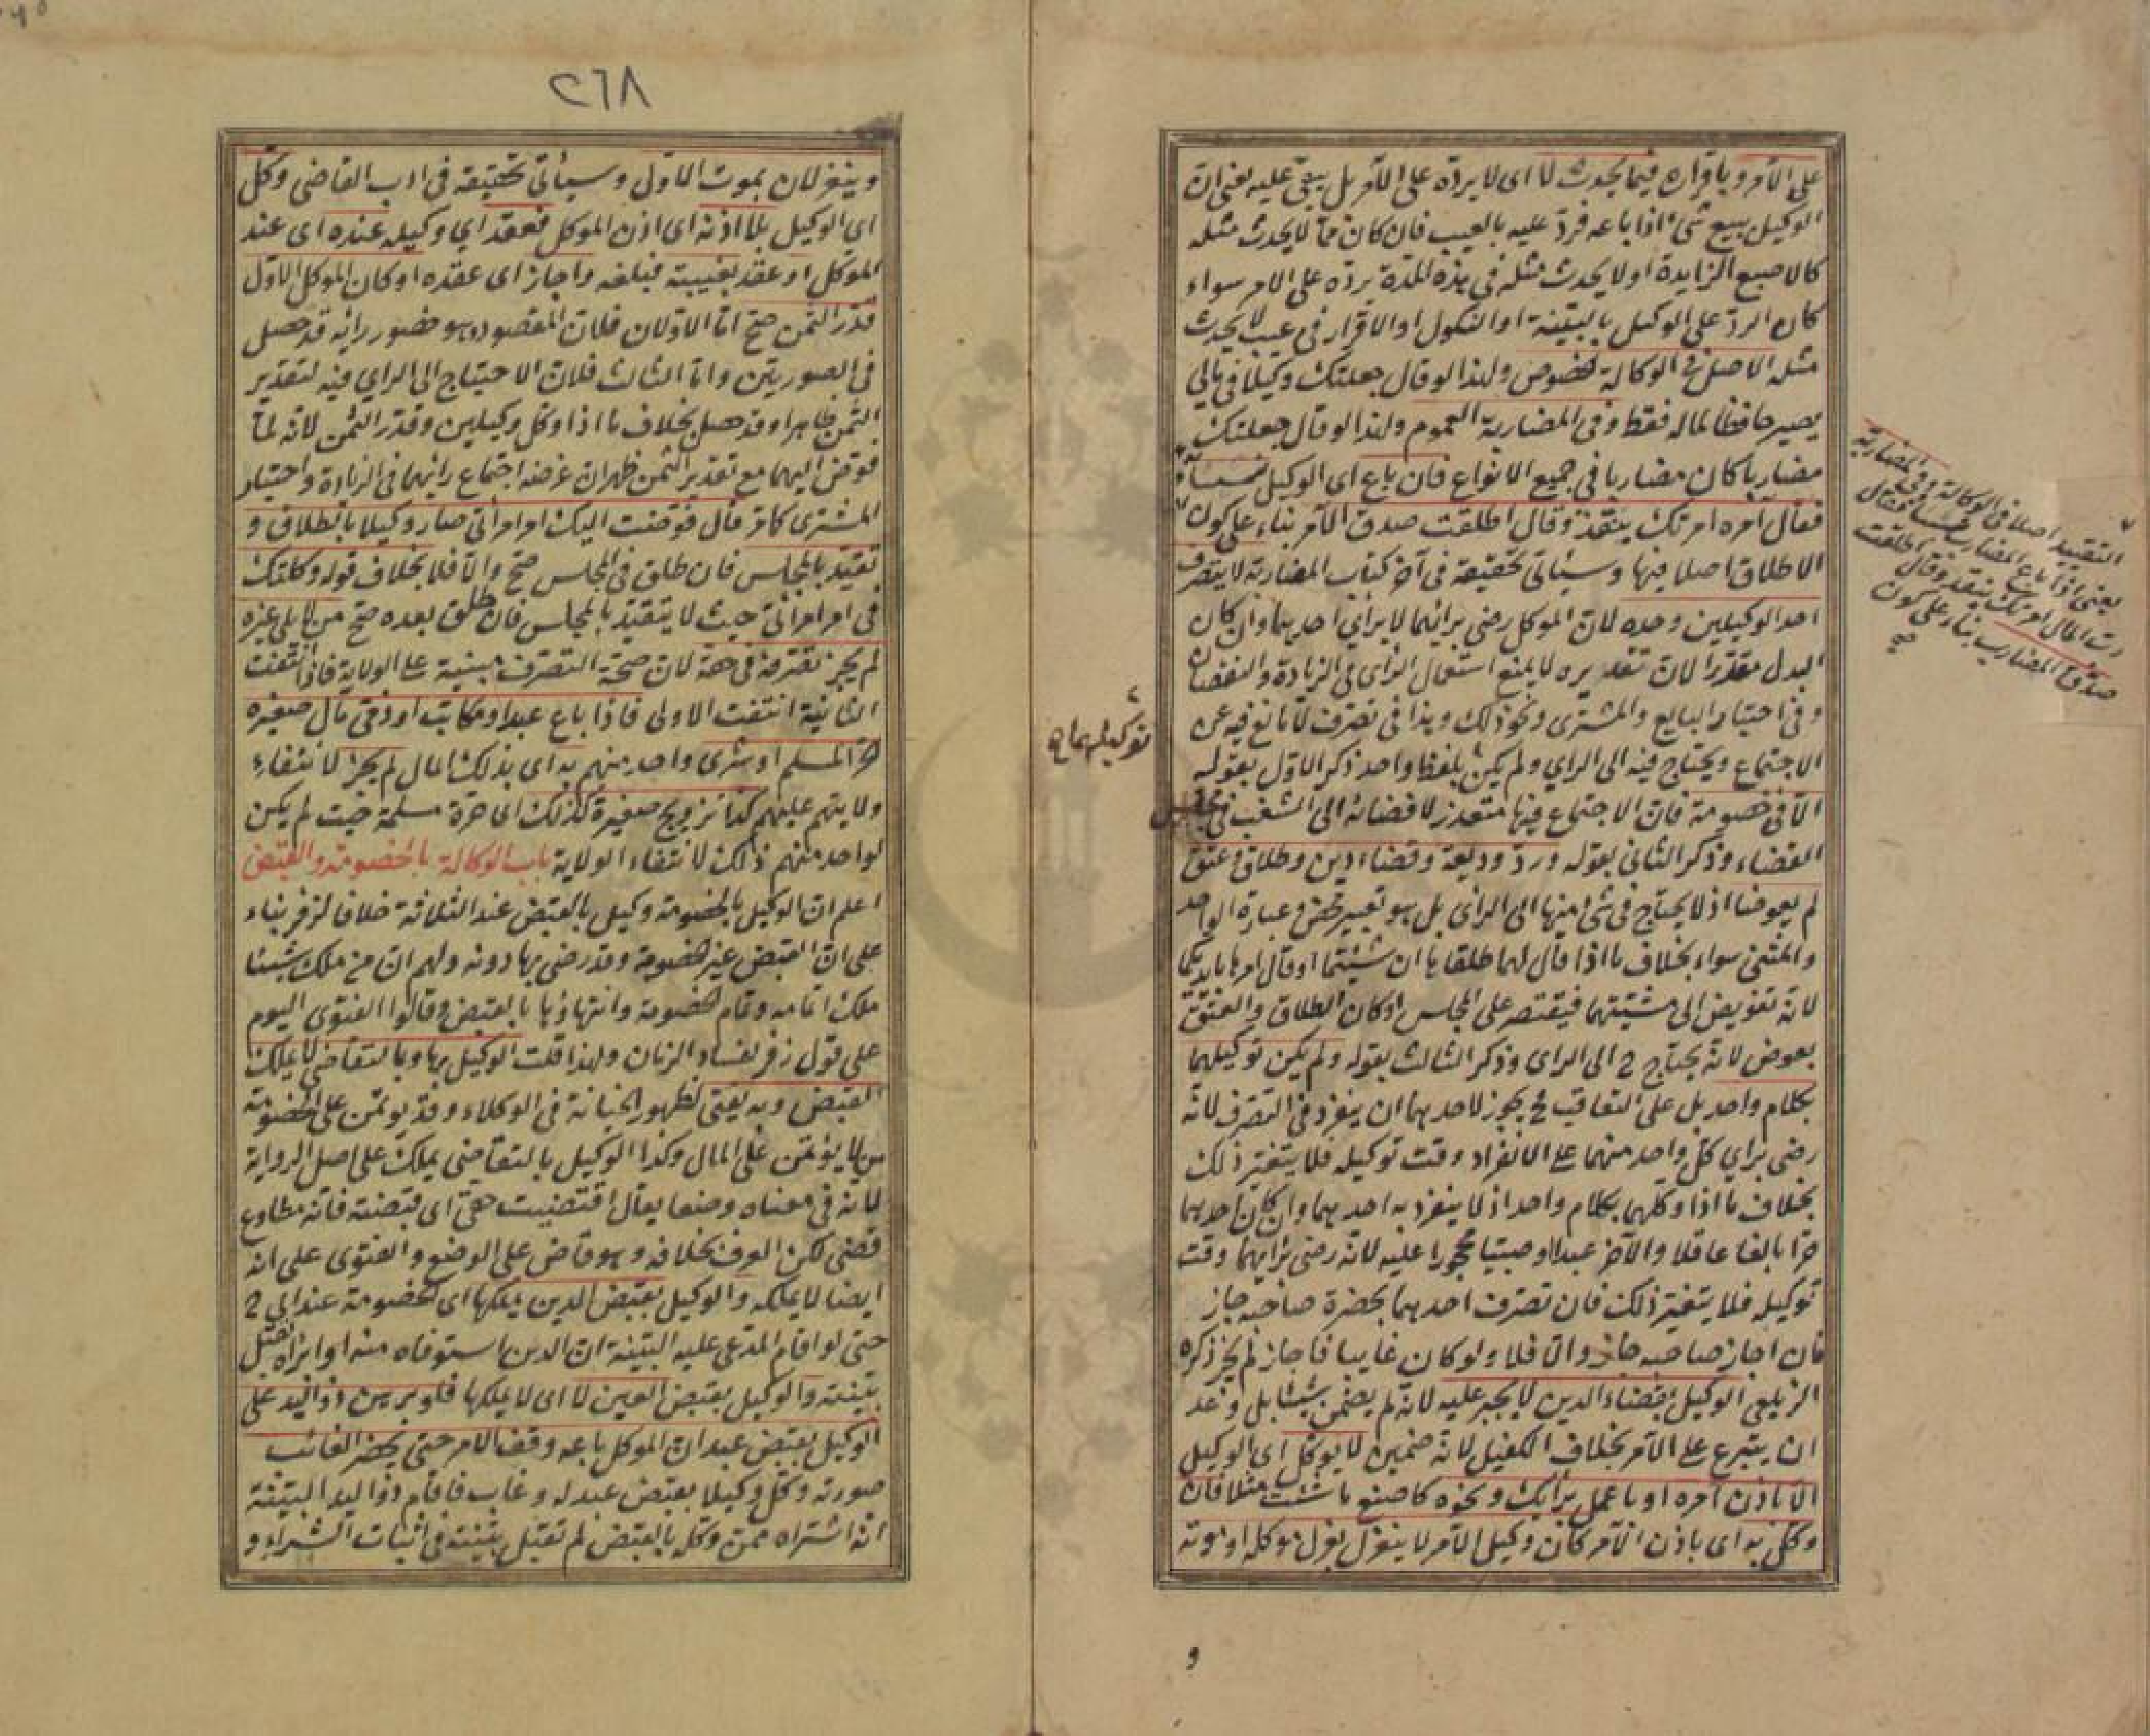 على الآمر وباقراره فيما يحدث لا اى لا يرده على الآمر بل يبقى عليه يعنى ان
الوكيل ببيع شئ اذا باعه فرد عليه بالعيب فان كان مما لا يحدث مثله
كالاصبع الزايدة او لا يحدث مثله فى هذه المدة يرده على الامر سواء
كان الرد على الوكيل بالبينة او النكول او الاقرار فى عيب لا يحدث
مثله الاصل فى الوكالة الخصوص ولهذا لو قال جعلتك وكيلا فى مالى
يصير حافظا لماله فقط وفى المضاربة العموم ولهذا لو قال جعلتك
مضاربا كان مضاربا فى جميع الانواع فان باع اى الوكيل نسيئا
فقال آمره امرتك بنقد وقال اطلقت صدق الآمر بناء على كون
الاطلاق اصلا فيها وسيأتى تحقيقه فى آخر كتاب المضاربة لا يتصرف
احد الوكيلين وحده لان الموكل رضى برائهما لا براى احدهما وان كان
البدل مقدرا لان تقديره لا يمنع استعمال الراى فى الزيادة والنقصان
وفى اختيار البايع والمشترى ونحو ذلك وهذا فى تصرف لا مانع فيه عن
الاجتماع ويحتاج فيه الى الراي ولم يكن بلفظ واحد ذكر الاول بقوله
الا فى خصومة فان الاجتماع فيها متعذر لافضائه الى الشغب فى مجلس
القضاء وذكر الثانى بقوله ورد وديعة وقضاء دين وطلاق وعتق
لم يعوضا اذ لا يحتاج فى شئ منها الى الراى بل هو تعبير محض وعبارة الواحد
والمثنى سواء بخلاف ما اذا قال لهما طلقاها ان شئتما او قال امرها بايديكما
لانه تفويض الى مشيتهما فيقتصر على المجلس او كان الطلاق والعتق
بعوض لانه يحتاج ح الى الراى وذكر الثالث بقوله ولم يكن توكيلهما
بكلام واحد بل على التعاقب فح يجوز لاحدهما ان ينفرد فى التصرف لانه
رضى براي كل واحد منهما على الانفراد وقت توكيله فلا يتغير ذلك
بخلاف ما اذا وكلهما بكلام واحد اذ لا ينفرد به احدهما وان كان احدهما
حرا بالغا عاقلا والآخر عبدا او صبيا محجورا عليه لانه رضى برايهما وقت
توكيله فلا يتغير ذلك فان تصرف احدهما بحضرة صاحبه جاز
فان اجاز صاحبه جاز والا فلا ولو كان غايبا فاجاز لم يجز ذكره
الزيلعى الوكيل بقضاء الدين لا يجبر عليه لانه لم يضمن شيئا بل وعد
ان يتبرع على الآمر بخلاف الكفيل لانه ضمين لا يوكل اى الوكيل
الا باذن آمره او باعمل برايك ونحوه كاصنع ما شئت مثلا فان
وكل به اى باذن الآمر كان وكيل الآمر لا ينعزل بعزل موكله او موته
التقييد اصلا فى الوكالة وفى المضاربة
يعنى اذا باع المضارب نسيئا فقال
رب المال امرتك بنقد وقال اطلقت
صدق المضارب بناء على كون
صح
توكيلهما
و
٢٦٨
وينعزلان بموت الاول وسيأتى تحقيقه فى ادب القاضى وكل
اى الوكيل بلا اذنه اى اذن الموكل فعقد اي وكيله عنده اى عند
الموكل او عقد بغيبته فبلغه واجاز اى عقده او كان الموكل الاول
قدر الثمن صح اما الاولان فلان المقصود وهو حضور رائه قد حصل
فى الصورتين واما الثالث فلان الاحتياج الى الراي فيه لتقدير
الثمن ظاهرا وقد حصل بخلاف ما اذا وكل وكيلين وقدر الثمن لانه لما
فوض اليهما مع تقدير الثمن ظهر ان غرضه اجتماع رائهما فى الزيادة واختيار
المشترى كامر قال فوضت اليك امر امرأتى صار وكيلا بالطلاق و
تقيد بالمجلس فان طلق فى المجلس صح والا فلا بخلاف قوله وكلتك
فى امر امرأتى حيث لا يتقيد بالمجلس فان طلق بعده صح من لا يلى غيره
لم يجز تصرفه فى حقه لان صحة التصرف مبنية على الولاية فاذا انتفت
الثانية انتفت الاولى فاذا باع عبد او مكاتب او ذمى مال صغيره
الحر المسلم او شرى واحد منهم به اى بذلك المال لم يجز لانتفاء
ولايتهم عليهم كذا تزويج صغيرة كذلك اى حرة مسلمة حيث لم يكن
لواحد منهم ذلك لانتفاء الولاية باب الوكالة بالخصومة والقبض
اعلم ان الوكيل بالخصومة وكيل بالقبض عند الثلاثة خلافا لزفر بناء
على ان القبض غير الخصومة وقد رضى بها دونه ولهم ان من ملك شيئا
ملك اتمامه وتمام الخصومة وانتهاؤها بالقبض وقالوا الفتوى اليوم
على قول زفر لفساد الزمان ولهذا قلت الوكيل بها وبالتقاضى لا يملك
القبض وبه يفتى لظهور الخيانة فى الوكلاء وقد يوتمن على الخصومة
من لا يؤتمن على المال وكذا الوكيل بالتقاضى يملك على اصل الرواية
لانه فى معناه وضعا يقال اقتضيت حقى اى قبضته فانه مطاوع
قضى لكن العرف بخلافه وهو قاض على الوضع والفتوى على انه
ايضا لا يملكه والوكيل بقبض الدين يملكها اى الخصومة عند ابى ح
حتى لو اقام المدعى عليه البينة ان الدين استوفاه منه او ابراه تقبل
بينته والوكيل بقبض العين لا اى لا يملكها فلو برهن ذو اليد على
الوكيل بقبض عبد ان الموكل باعه وقف الامر حتى يحضر الغائب
صورته وكل وكيلا بقبض عبد له وغاب فاقام ذو اليد البينة
انه اشتراه ممن وكله بالقبض لم تقبل بينته فى اثبات الشراء و